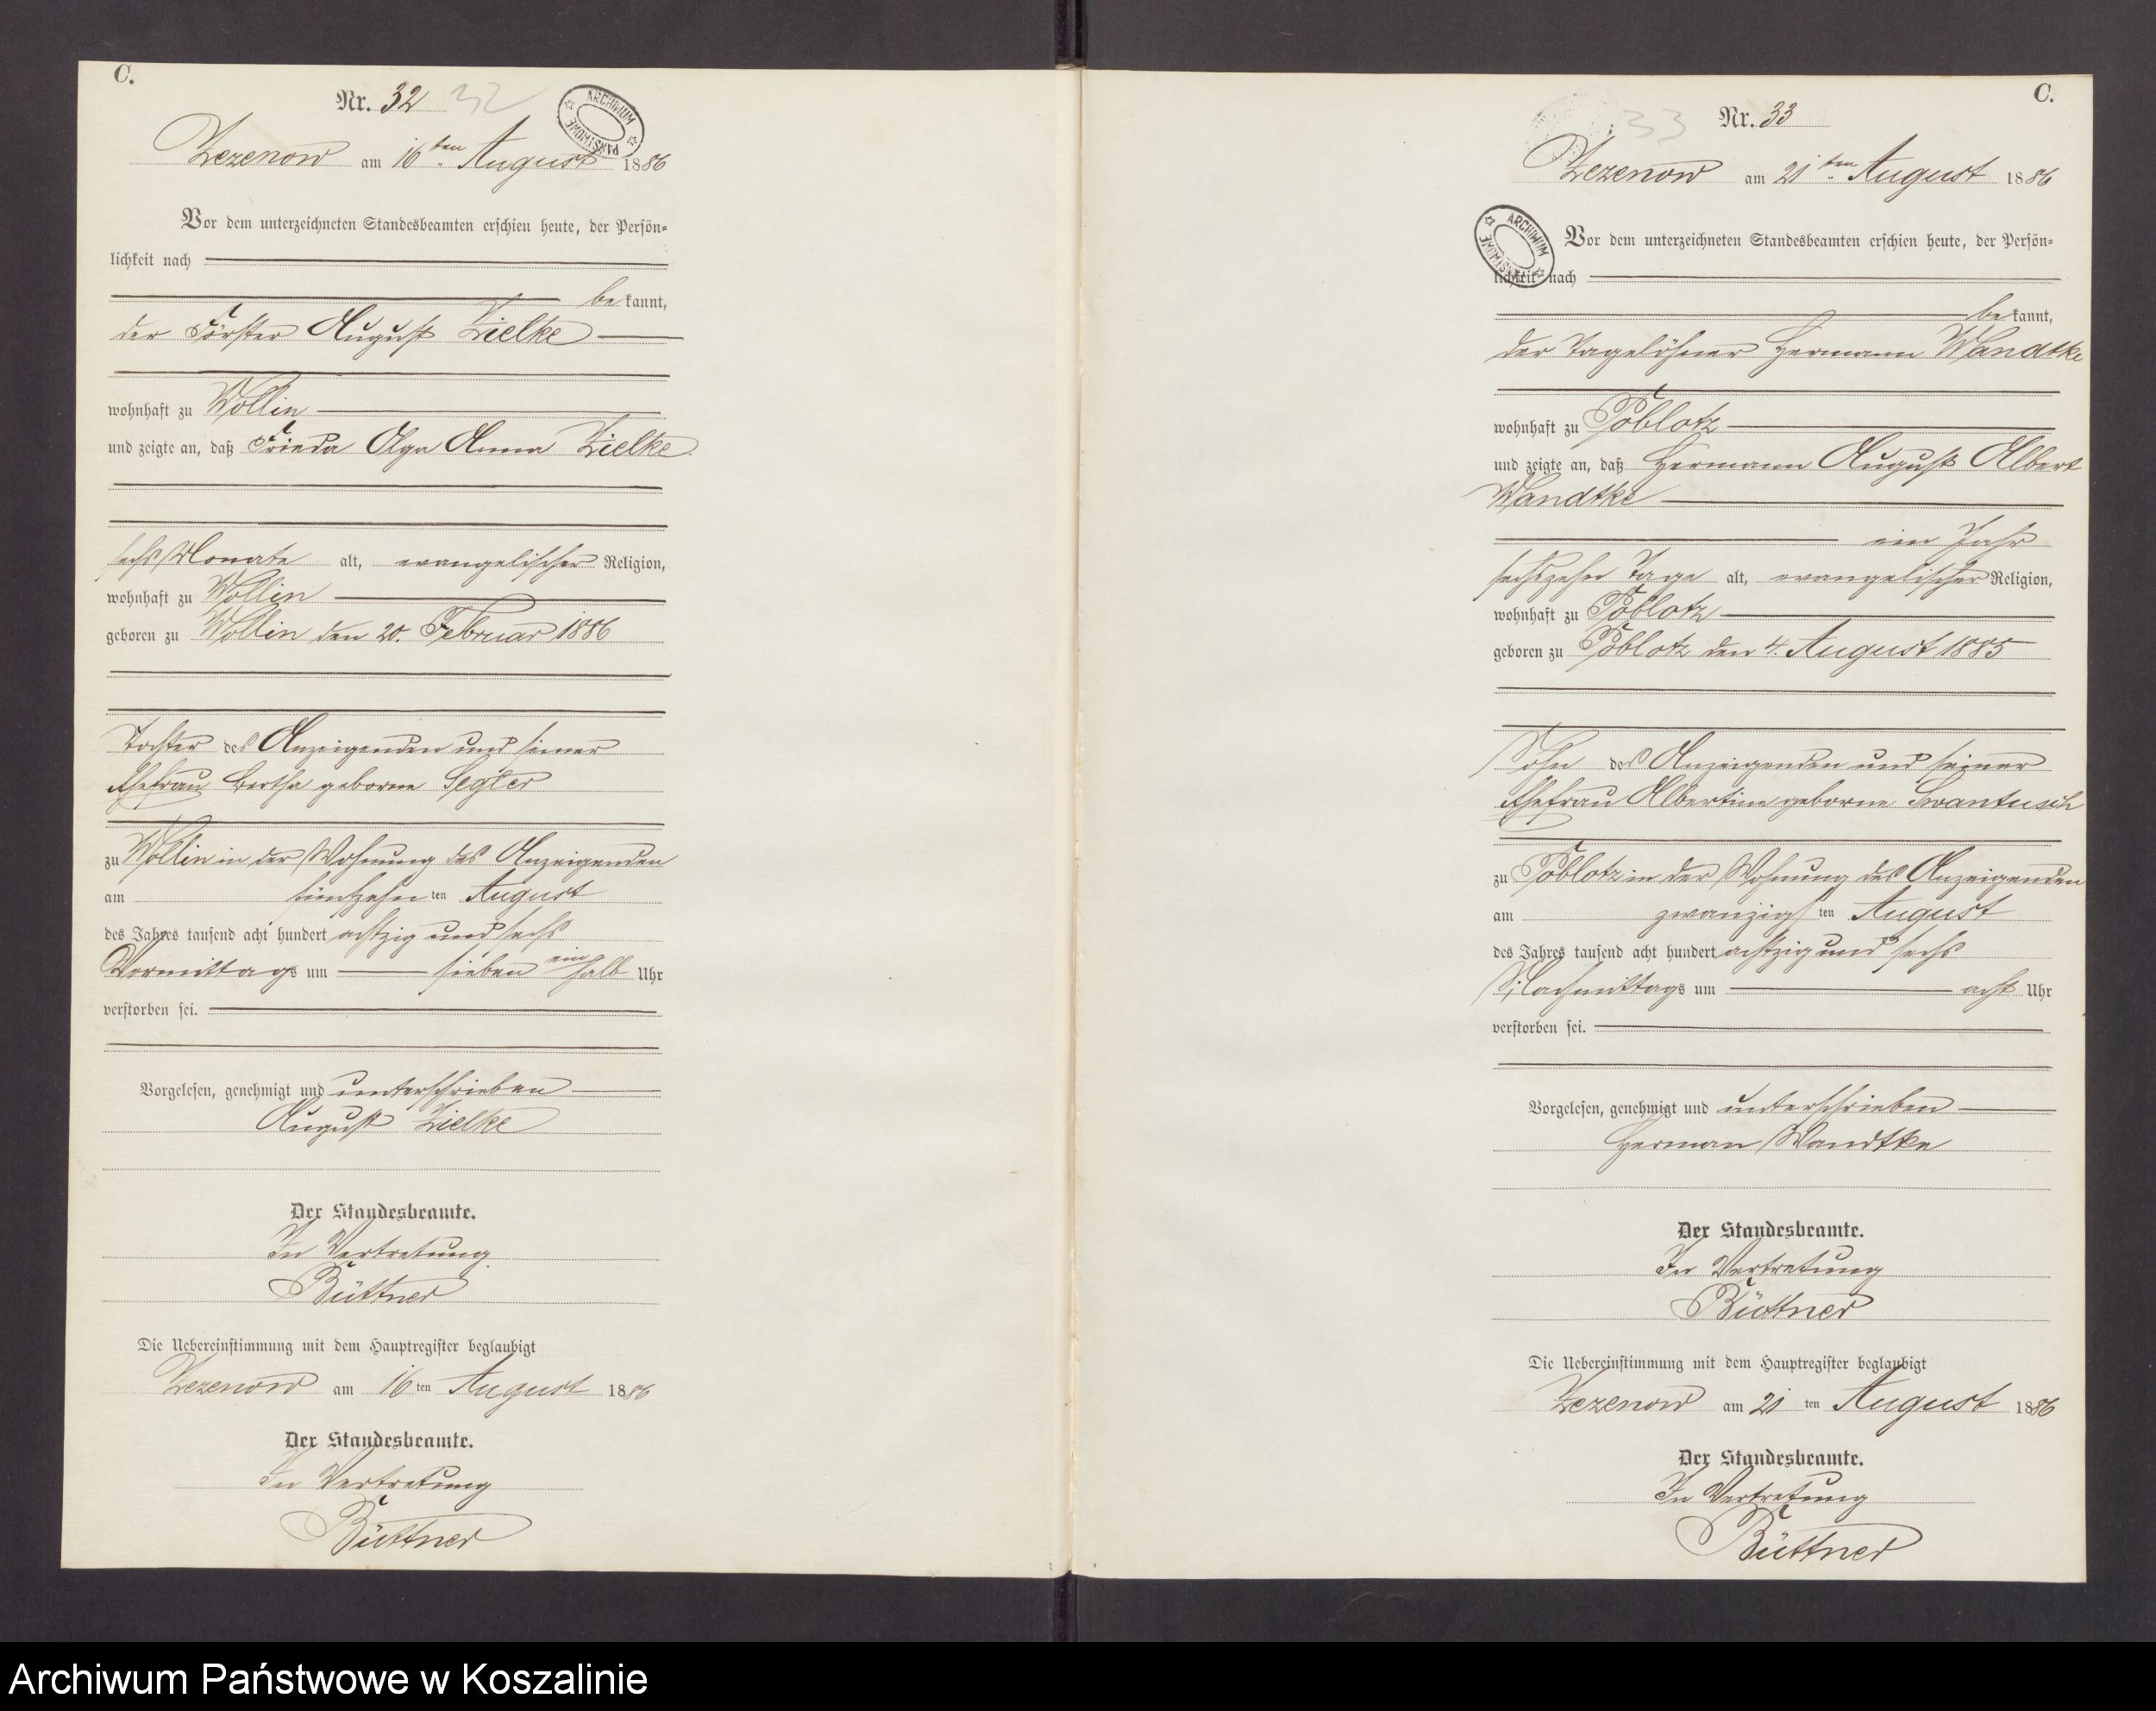 C.
Nr. 32 32
ARCHIWUM PAŃSTWOWE
Zezenow am 16ten August 1886
Vor dem unterzeichneten Standesbeamten erschien heute, der Persön-
lichkeit nach
bekannt,
der Förster August Zielke
wohnhaft zu Wollin
und zeigte an, daß Frieda Olga Anna Zielke
sechs Monate alt, evangelischer Religion,
wohnhaft zu Wollin
geboren zu Wollin den 20. Februar 1886
Tochter des Anzeigenden und seiner
Ehefrau Bertha geborne Segler
zu Wollin in der Wohnung des Anzeigenden
am fünfzehnten August
des Jahres tausend acht hundert achtzig und sechs
Vormittags um sieben ein halb Uhr
verstorben sei.
Vorgelesen, genehmigt und unterschrieben
August Zielke
Der Standesbeamte.
In Vertretung
Büttner
Die Uebereinstimmung mit dem Hauptregister beglaubigt
Zezenow am 16ten August 1886
Der Standesbeamte.
In Vertretung
Büttner
C.
33 Nr. 33
Zezenow am 21ten August 1886
ARCHIWUM PAŃSTWOWE
Vor dem unterzeichneten Standesbeamten erschien heute, der Persön-
lichkeit nach
bekannt,
der Tagelöhner Hermann Wandtke
wohnhaft zu Poblotz
und zeigte an, daß Hermann August Albert
Wandtke
ein Jahr
sechszehn Tage alt, evangelischer Religion,
wohnhaft zu Poblotz
geboren zu Poblotz den 4. August 1885
Sohn des Anzeigenden und seiner
Ehefrau Albertine geborne Swantusch
zu Poblotz in der Wohnung des Anzeigenden
am zwanzigsten August
des Jahres tausend acht hundert achtzig und sechs
Nachmittags um acht Uhr
verstorben sei.
Vorgelesen, genehmigt und unterschrieben
Herman Wandtke
Der Standesbeamte.
In Vertretung
Büttner
Die Uebereinstimmung mit dem Hauptregister beglaubigt
Zezenow am 21ten August 1886
Der Standesbeamte.
In Vertretung
Büttner
Archiwum Państwowe w Koszalinie